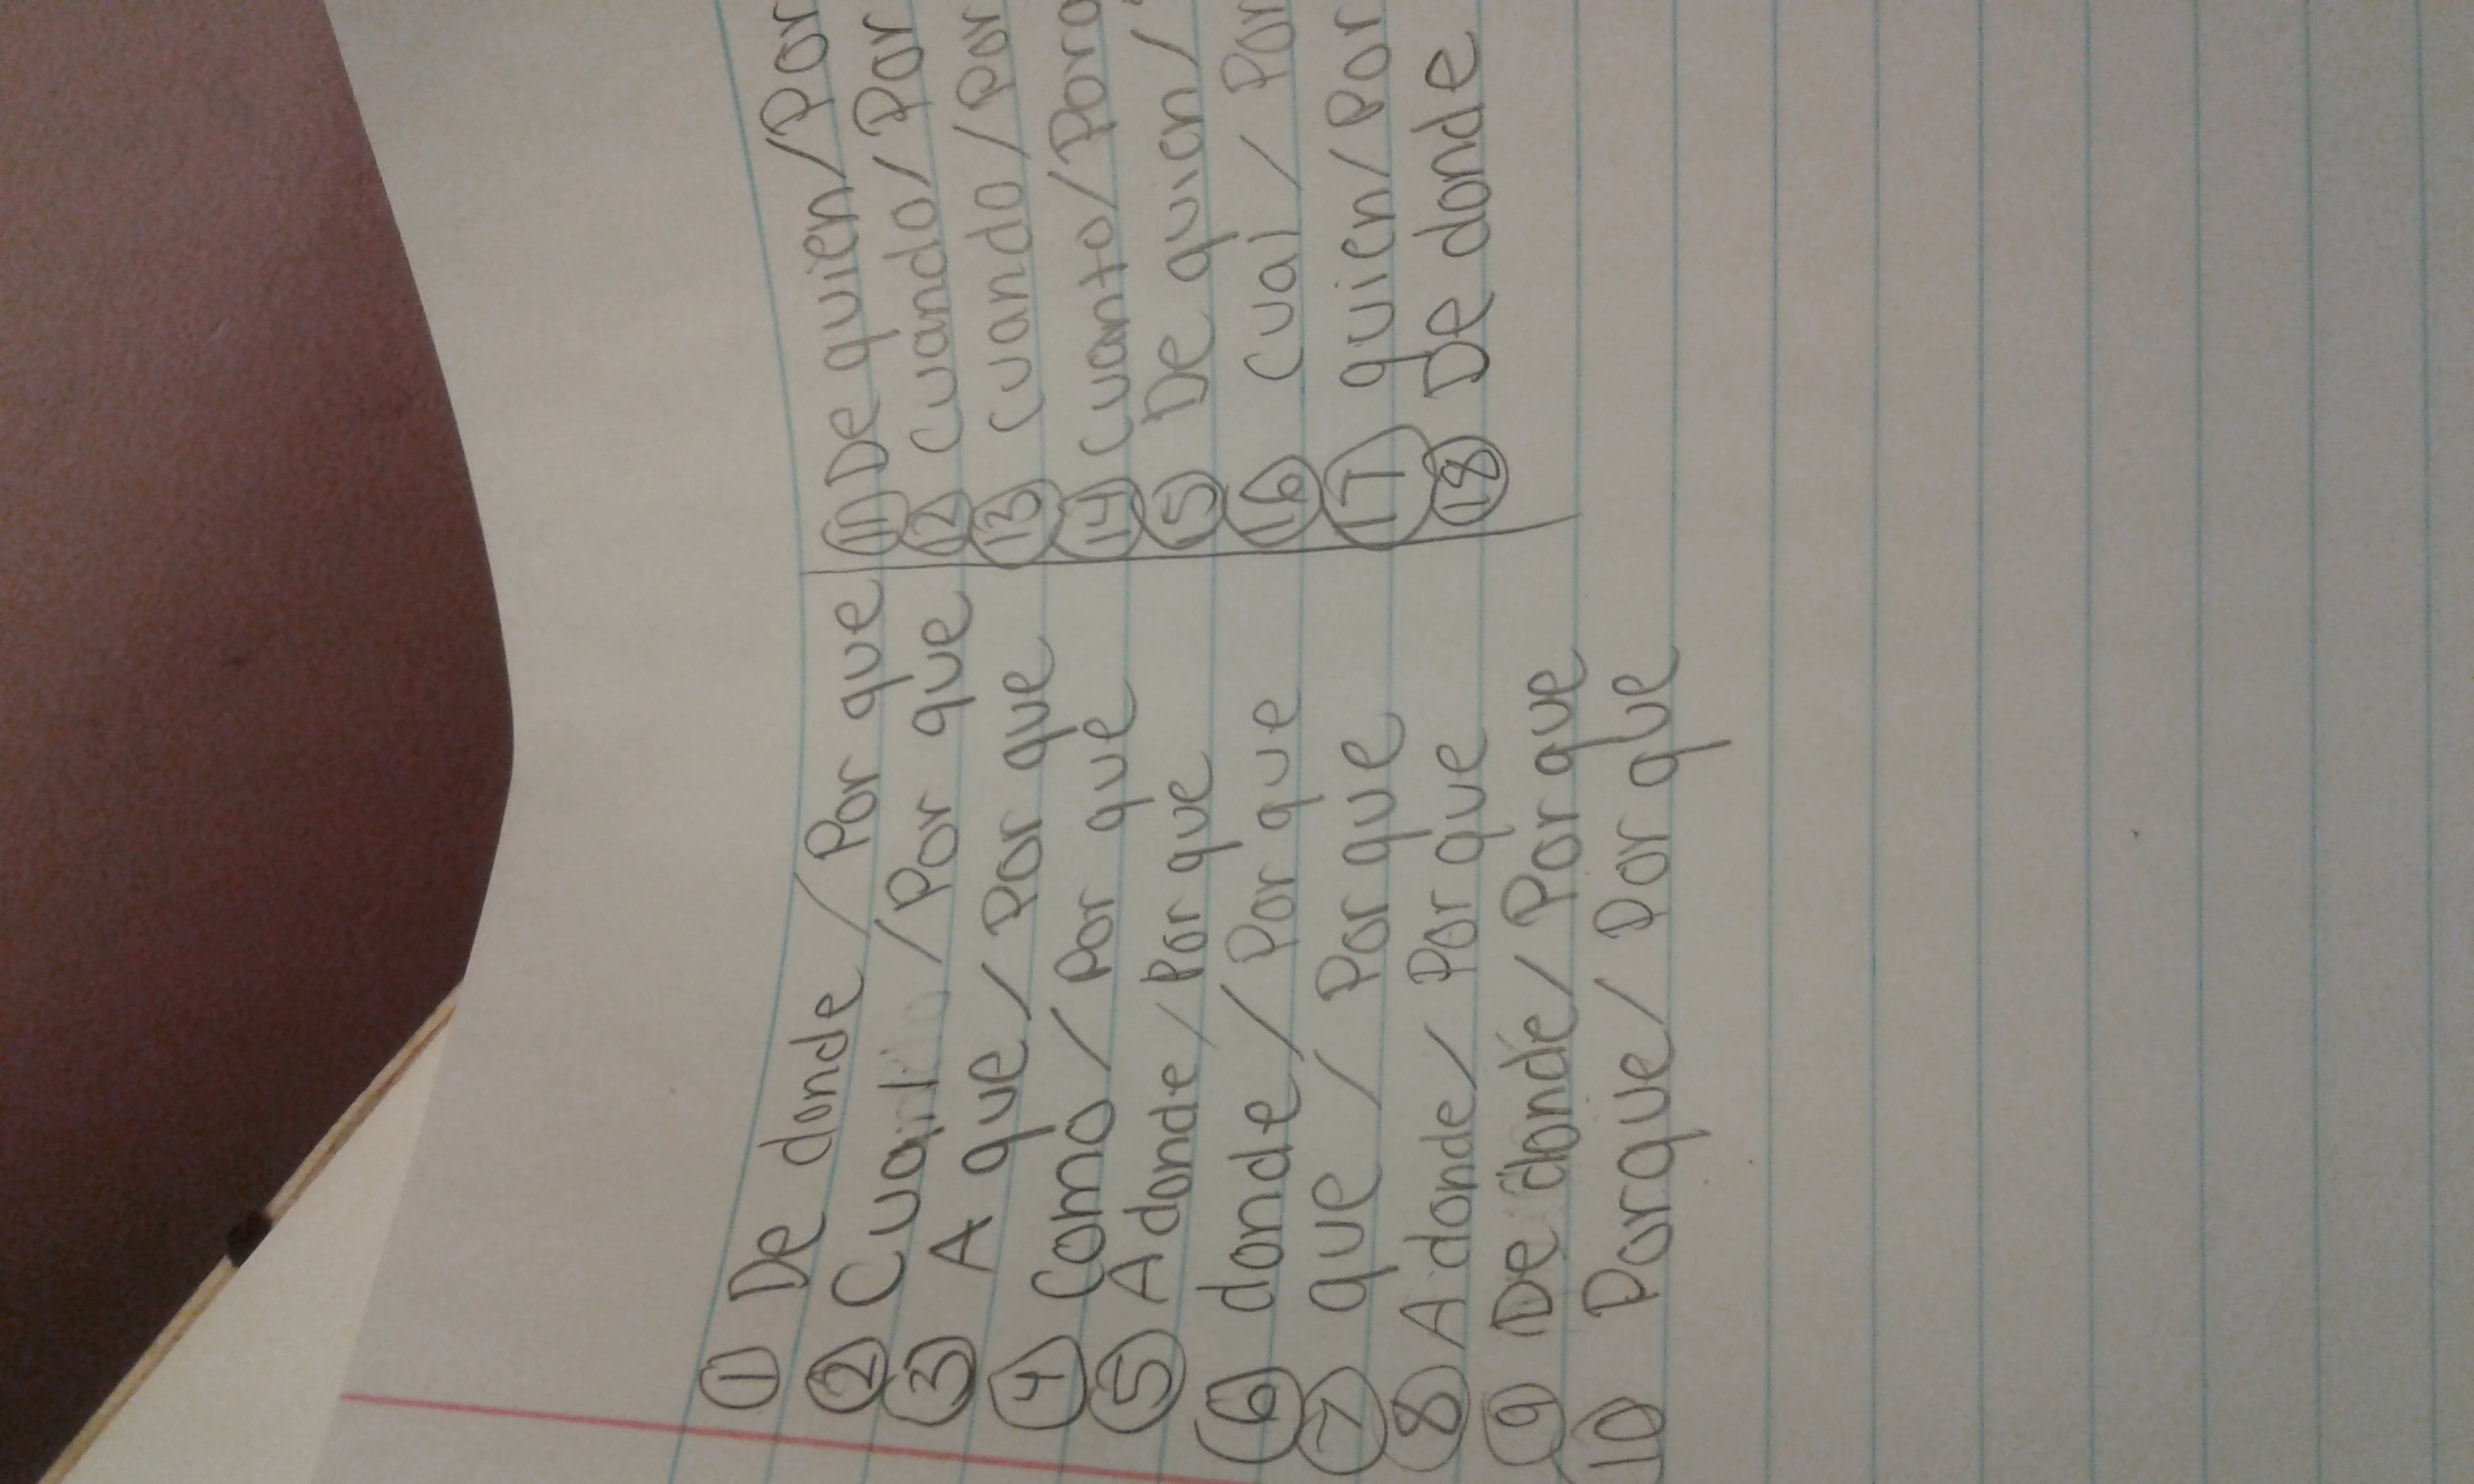 ① De donde / Por que
② Cuan / Por que
③ A que / Por que
④ Como / Por que
⑤ A donde / Por que
⑥ donde / Por que
⑦ que / Por que
⑧ A donde / Por que
⑨ De donde / Por que
10 Porque / Por que
⑪ De quien / Por
⑫ Cuando / Por
⑬ Cuando / Por
⑭ Cuanto / Para
⑮ De quien /
⑯ Cual / Por
⑰ quien / Por
⑱ De donde